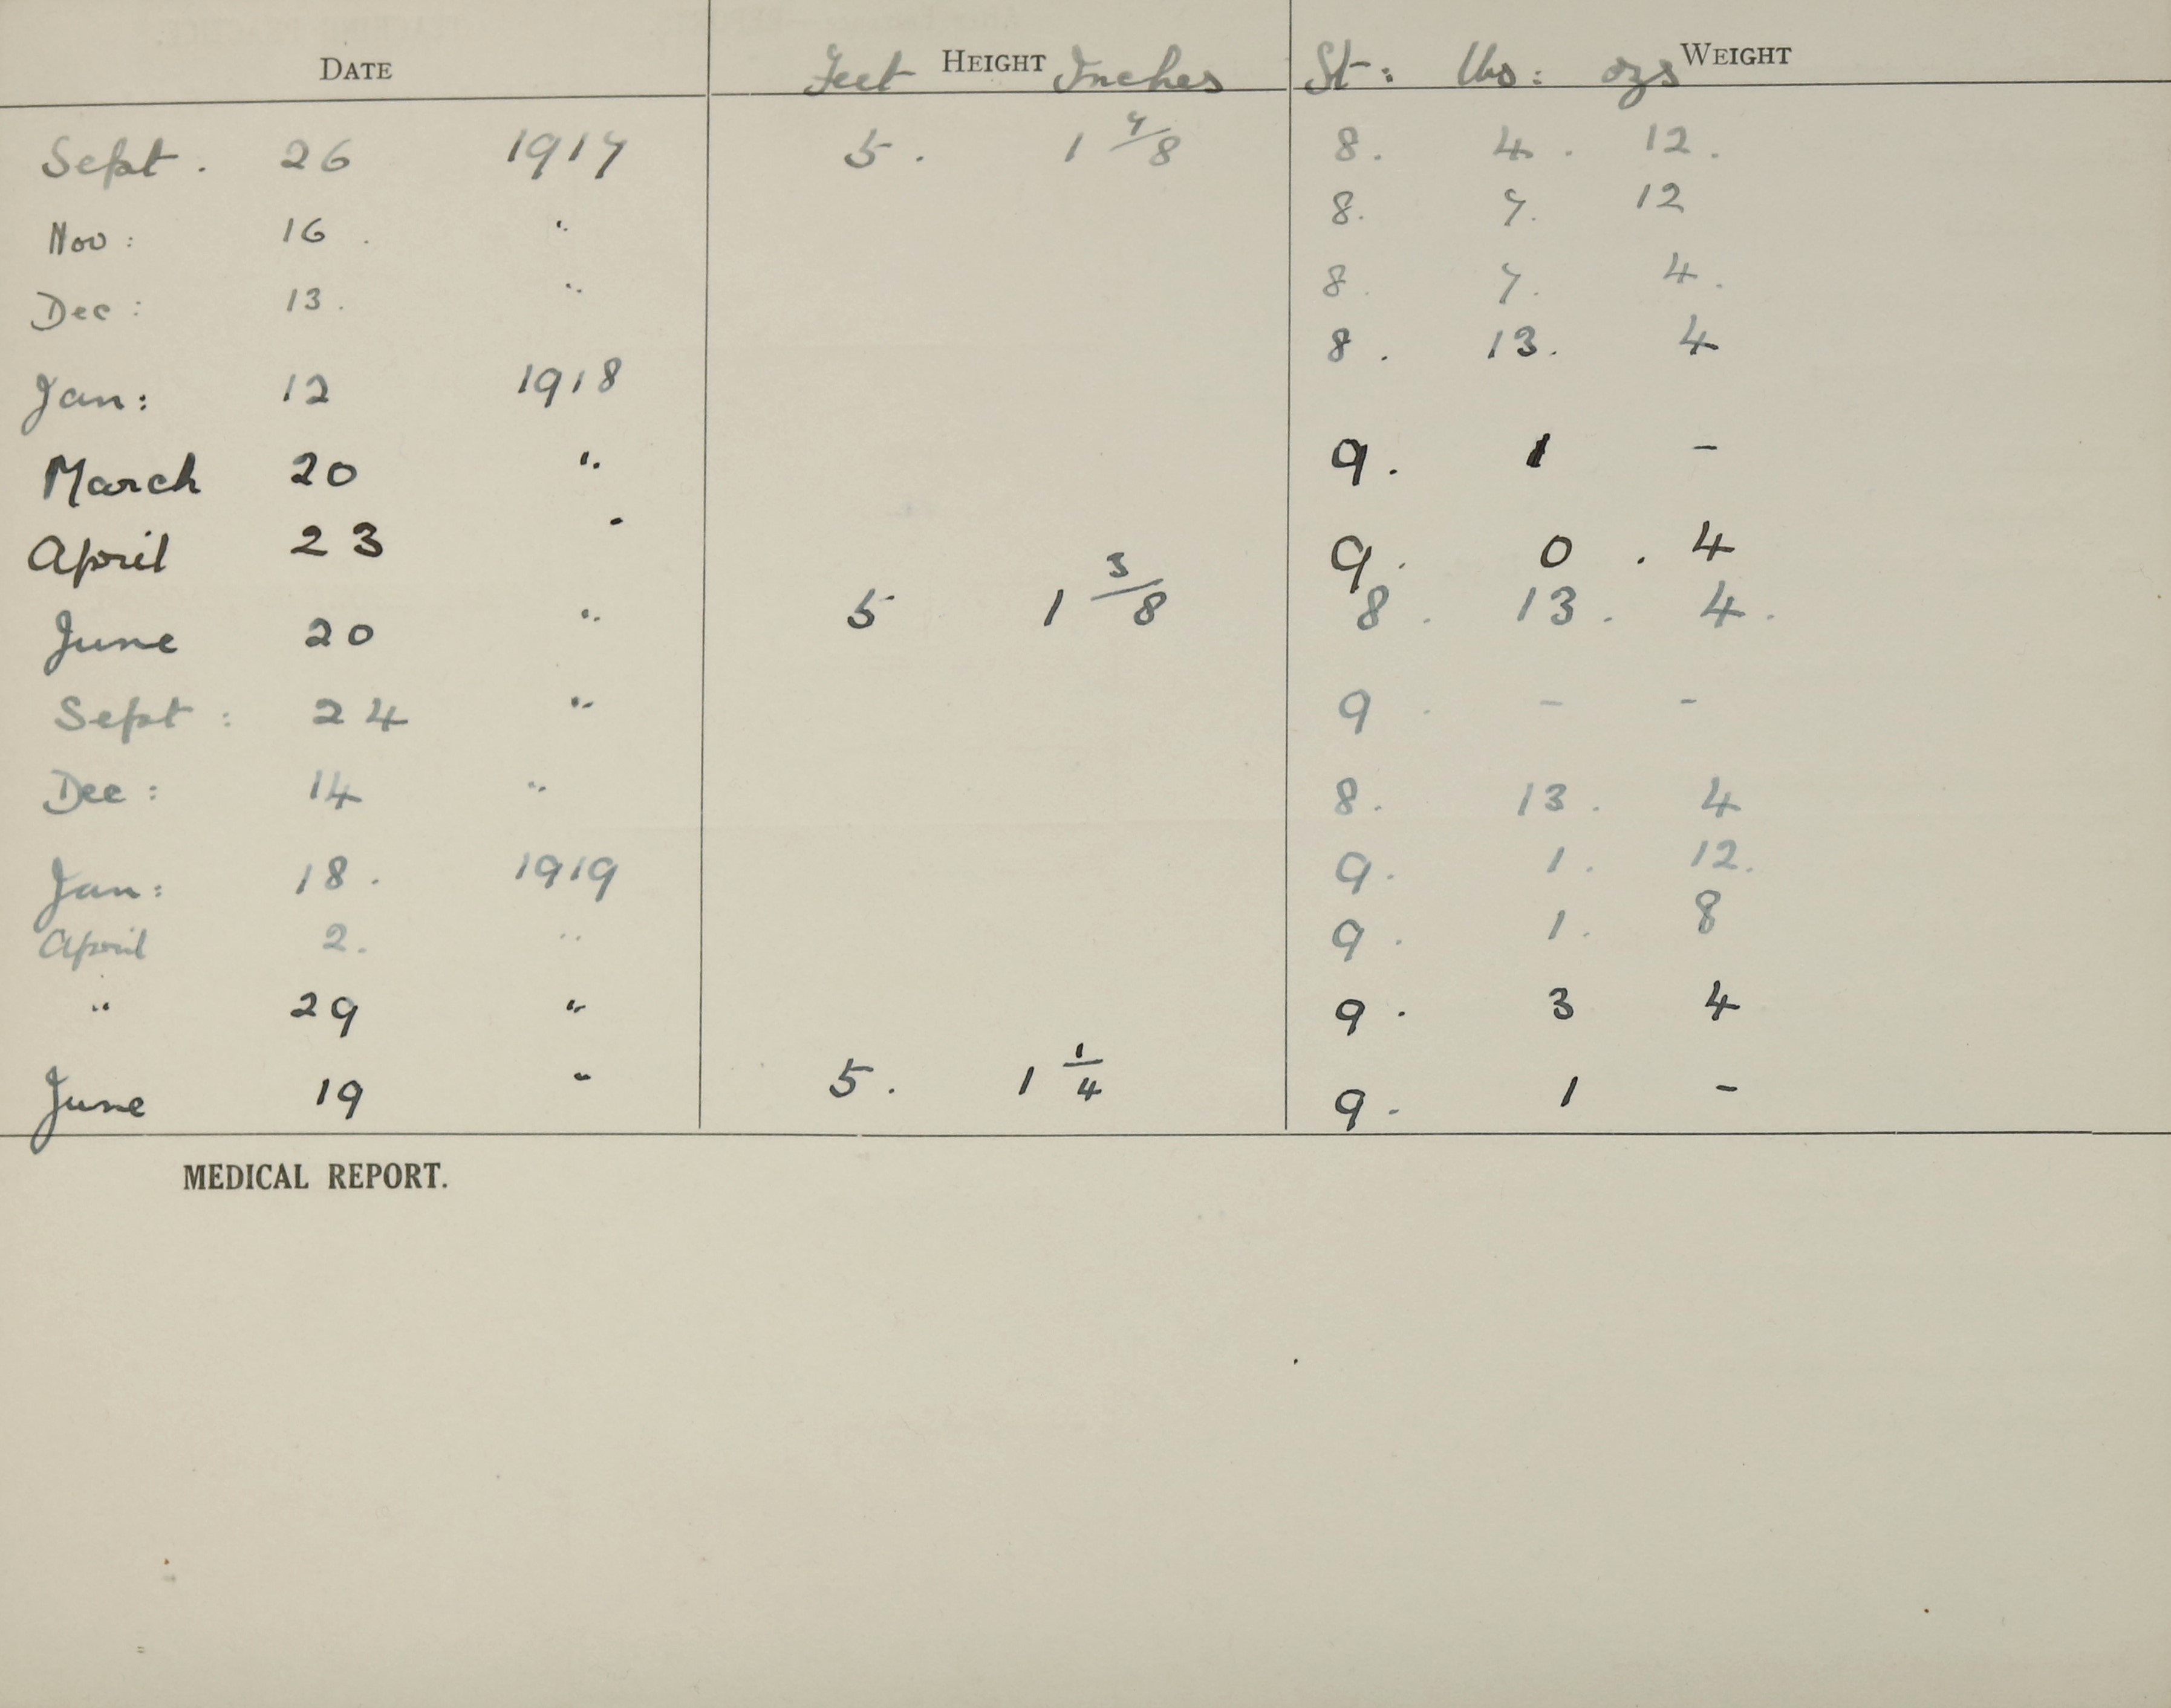 DATE Feet HEIGHT Inches St: lbs: ozs WEIGHT
Sept. 26 1917 5. 1 7/8 8. 4. 12.
Nov: 16. " 8. 7. 12
Dec: 13. " 8. 7. 4.
Jan: 12 1918 8. 13. 4
March 20 " 9. 1 -
April 23 " 9. 0. 4
June 20 " 5 1 3/8 8. 13. 4.
Sept: 24 " 9. - -
Dec: 14 " 8. 13. 4
Jan: 18. 1919 9. 1. 12.
April 2. " 9. 1. 8
" 29 " 9. 3 4
June 19 " 5. 1 1/4 9. 1 -
MEDICAL REPORT.